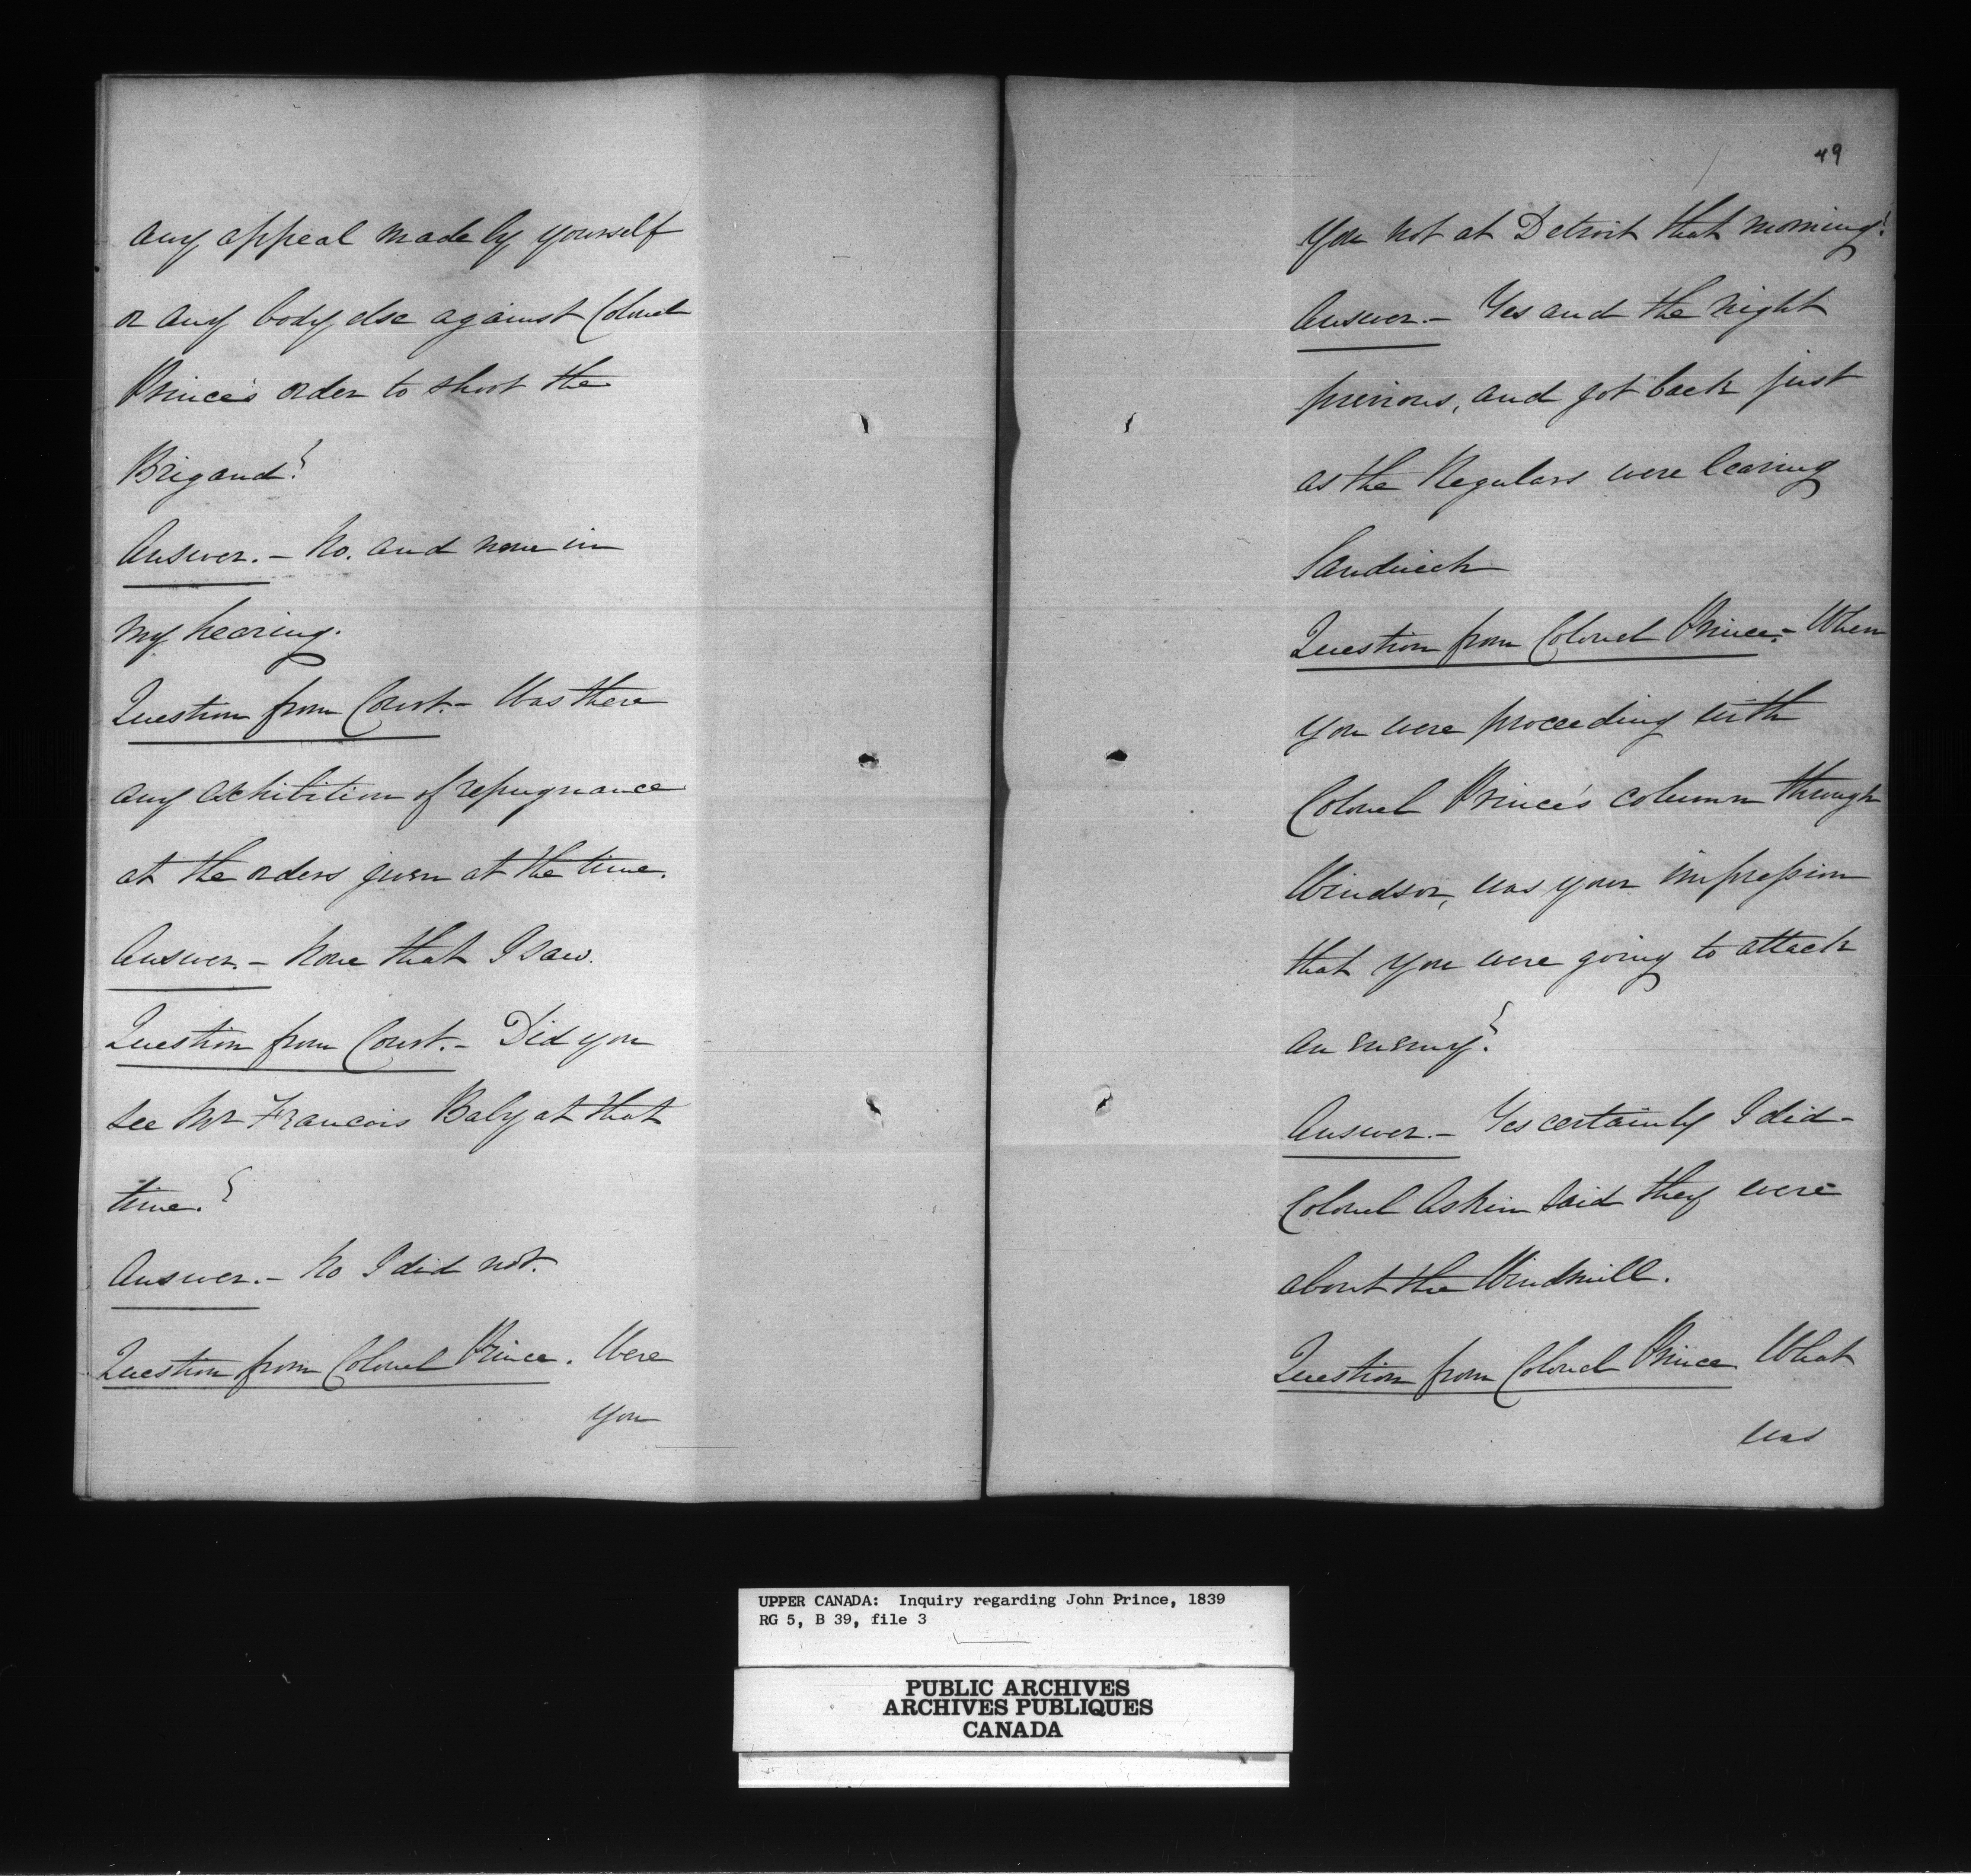 any appeal made by yourself
or any body else against Colonel
Prince's order to shoot the
Brigand?
Answer. - No. and none in
my hearing.
Question from Court. - Was there
any exhibition of repugnance
at the orders given at the time.
Answer - None that I saw.
Question from Court. - Did you
see Mr Francois Baby at that
time.?
Answer. - No I did not.
Question from Colonel Prince. Were
you
49
you not at Detroit that morning?
Answer. - Yes and the night
previous, and got back just
as the Regulars were leaving
Sandwich
Question from Colonel Prince. - When
you were proceeding with
Colonel Prince's column through
Windsor, was your impression
that you were going to attack
an enemy?
Answer. - Yes certainly I did -
Colonel Askin said they were
about the Windmill.
Question from Colonel Prince What
was
UPPER CANADA: Inquiry regarding John Prince, 1839
RG 5, B 39, file 3
PUBLIC ARCHIVES
ARCHIVES PUBLIQUES
CANADA